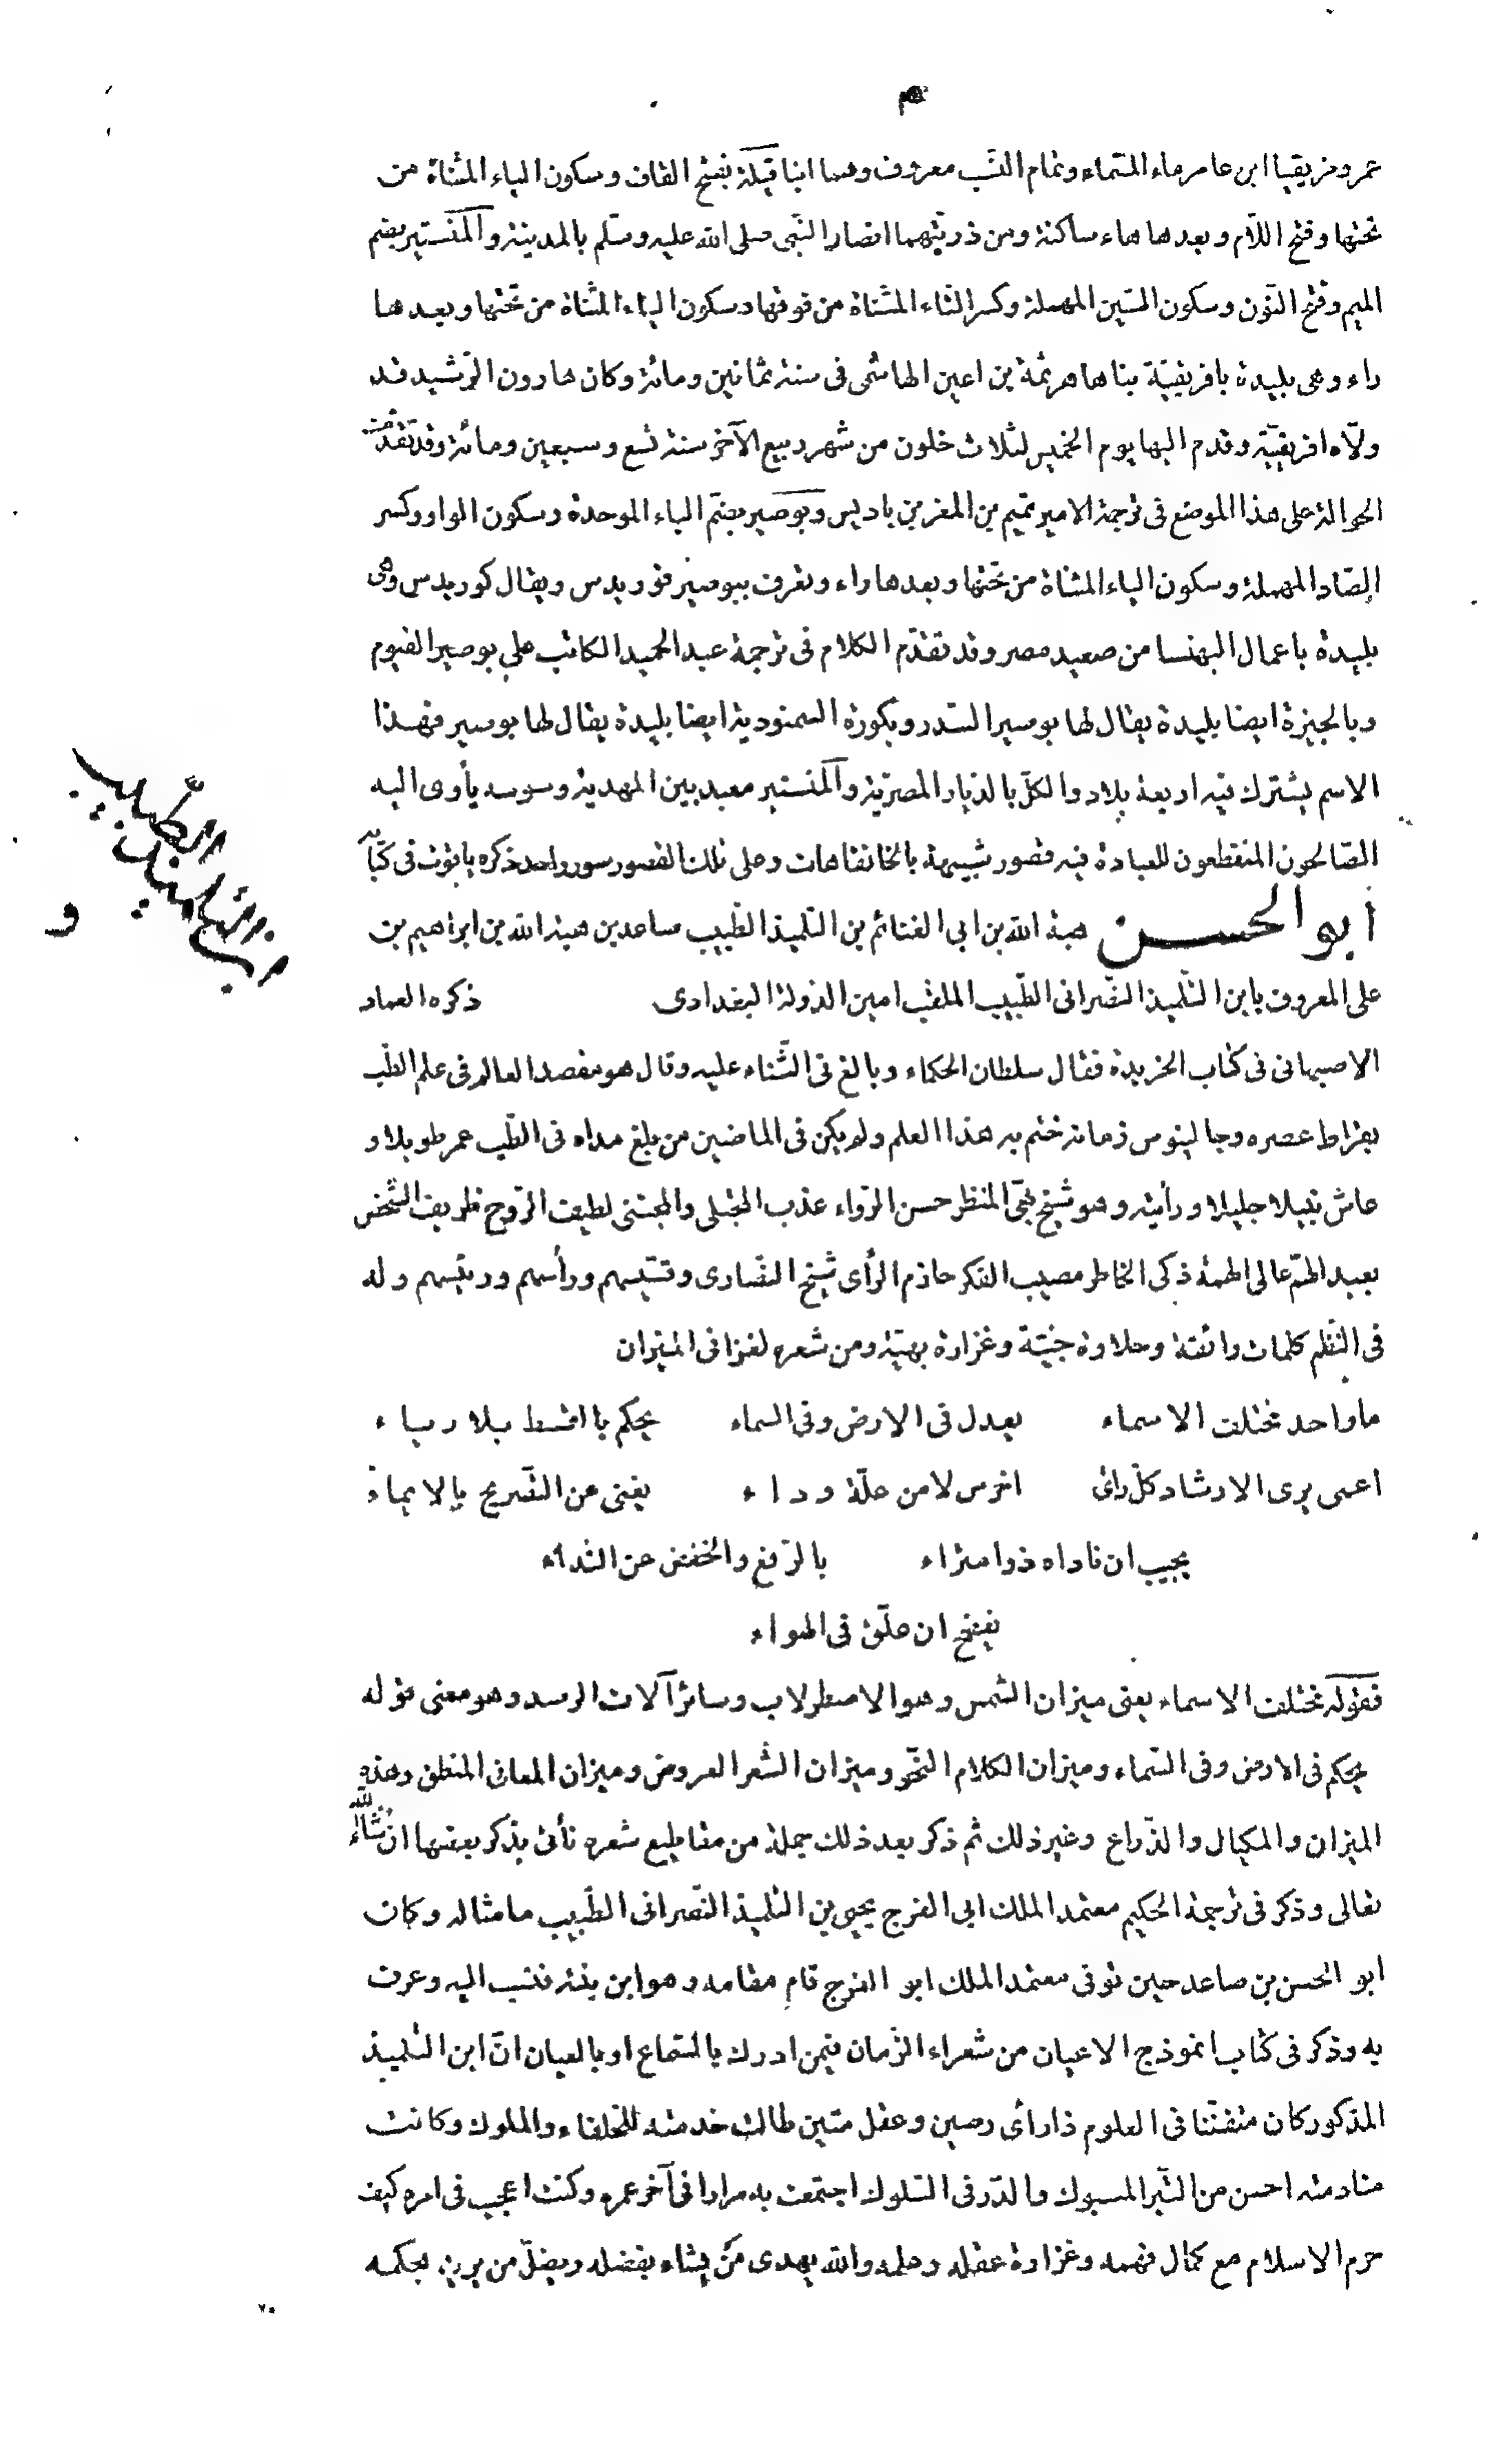 عمرو مزيقيا ابن عامر ماء السّماء وتمام النّسب معروف وهما ابنا قيلة بفتح القاف وسكون الياء المثناة من
تحتها وفتح اللّام وبعدها هاء ساكنة ومن ذريتهما انصار النّبى صلى الله عليه وسلّم بالمدينة والمنستير بضم
الميم وفتح النّون وسكون السّين المهملة وكسر التّاء المثناة من فوقها وسكون الياء المثناة من تحتها وبعدها
راء وهى بليدة بافريقيّة بناها هرثمة بن اعين الهاشمى فى سنة ثمانين ومائة وكان هارون الرّشيد قد
ولّاه افريقيّة وقدم اليها يوم الخميس لثلاث خلون من شهر ربيع الآخر سنة تسع وسبعين ومائة وقد تقدّمت
الحوالة على هذا الموضع فى ترجمة الامير تميم بن المعز بن باديس وبوصير بضمّ الباء الموحدة وسكون الواو وكسر
الصّاد المهملة وسكون الياء المثناة من تحتها وبعدها راء وتعرف ببوصير قوريدس ويقال كوريدس وهى
بليدة باعمال البهنسا من صعيد مصر وقد تقدّم الكلام فى ترجمة عبد الحميد الكاتب على بوصير الفيوم
وبالجيزة ايضا بليدة يقال لها بوصير السّدر وبكورة السمنودية ايضا بليدة يقال لها بوصير فهذا
الاسم يشترك فيه اربعة بلاد والكلّ بالدّيار المصريّة والمنستير معبد بين المهدية وسوسه يأوى اليه
الصّالحون المنقطعون للعبادة فيه قصور شبيهة بالخانقاهات وعلى تلك القصور سور واحد ذكره ياقوت فى كتابه
ابو الحسن هبة الله بن ابى الغنائم بن التلميذ الطّبيب صاعد بن هبة الله بن ابراهيم بن
على المعروف بابن التّلميذ النّصرانى الطّبيب الملقب امين الدّولة البغدادى ذكره العماد
الاصبهانى فى كتاب الخريدة فقال سلطان الحكماء وبالغ فى الثّناء عليه وقال هو مقصد العالم فى علم الطّب
بقراط عصره وجالينوس زمانه ختم به هذا العلم ولم يكن فى الماضين من بلغ مداه فى الطّب عمر طويلا و
عاش نبيلا جليلا ورأيته وهو شيخ بهىّ المنظر حسن الرّواء عذب المجتلى والمجتنى لطيف الرّوح ظريف الشّخص
بعيد الهمّ عالى الهمة ذكى الخاطر مصيب الفكر حازم الرّأى شيخ النّصارى وقسّيسهم ورأسهم ورئيسهم وله
فى النّظم كلمات رائقة وحلاوة جنيّة وغزارة بهيّة ومن شعره لغزا فى الميزان
ما واحد مختلف الاسماء يعدل فى الارض وفى السماء يحكم باالقسط بلا رياء
اعمى يرى الارشاد كلّ رائى اخرس لا من علّة وداء يغنى عن التّصريح بالايماء
يجيب ان ناداه ذو امتراء بالرّفع والخفض عن النّداء
يفتح ان علّق فى الهواء
فقوله مختلف الاسماء يعنى ميزان الشّمس وهو الاصطرلاب وسائر آلات الرصد وهو معنى قوله
يحكم فى الارض وفى السّماء وميزان الكلام النّحو وميزان الشّعر العروض وميزان المعانى المنطق وهذه
الميزان والمكيال والذّراع وغير ذلك ثم ذكر بعد ذلك جملة من مقاطيع شعره نأتى بذكر بعضها ان شاء الله
تعالى وذكر فى ترجمة الحكيم معتمد الملك ابى الفرج يحيى بن التلميذ النّصرانى الطّبيب ما مثاله وكان
ابو الحسن بن صاعد حين توفى معتمد الملك ابو الفرج قام مقامه وهو ابن بنته فنسب اليه وعرف
به وذكر فى كتاب انموذج الاعيان من شعراء الزّمان فيمن ادرك بالسّماع او بالعيان انّ ابن التّلميذ
المذكور كان متفنّنا فى العلوم ذا رأى رصين وعقل متين طالت خدمته للخلفاء والملوك وكانت
منادمته احسن من التّبر المسبوك والدّر فى السّلوك اجتمعت به مرارا فى آخر عمره وكنت اعجب فى امره كيف
حرم الاسلام مع كمال فهمه وغزارة عقله وعلمه والله يهدى من يشاء بفضله ويضلّ من يريد بحكمه
ابن التّلميذ
الطّبيب
و
٧٠